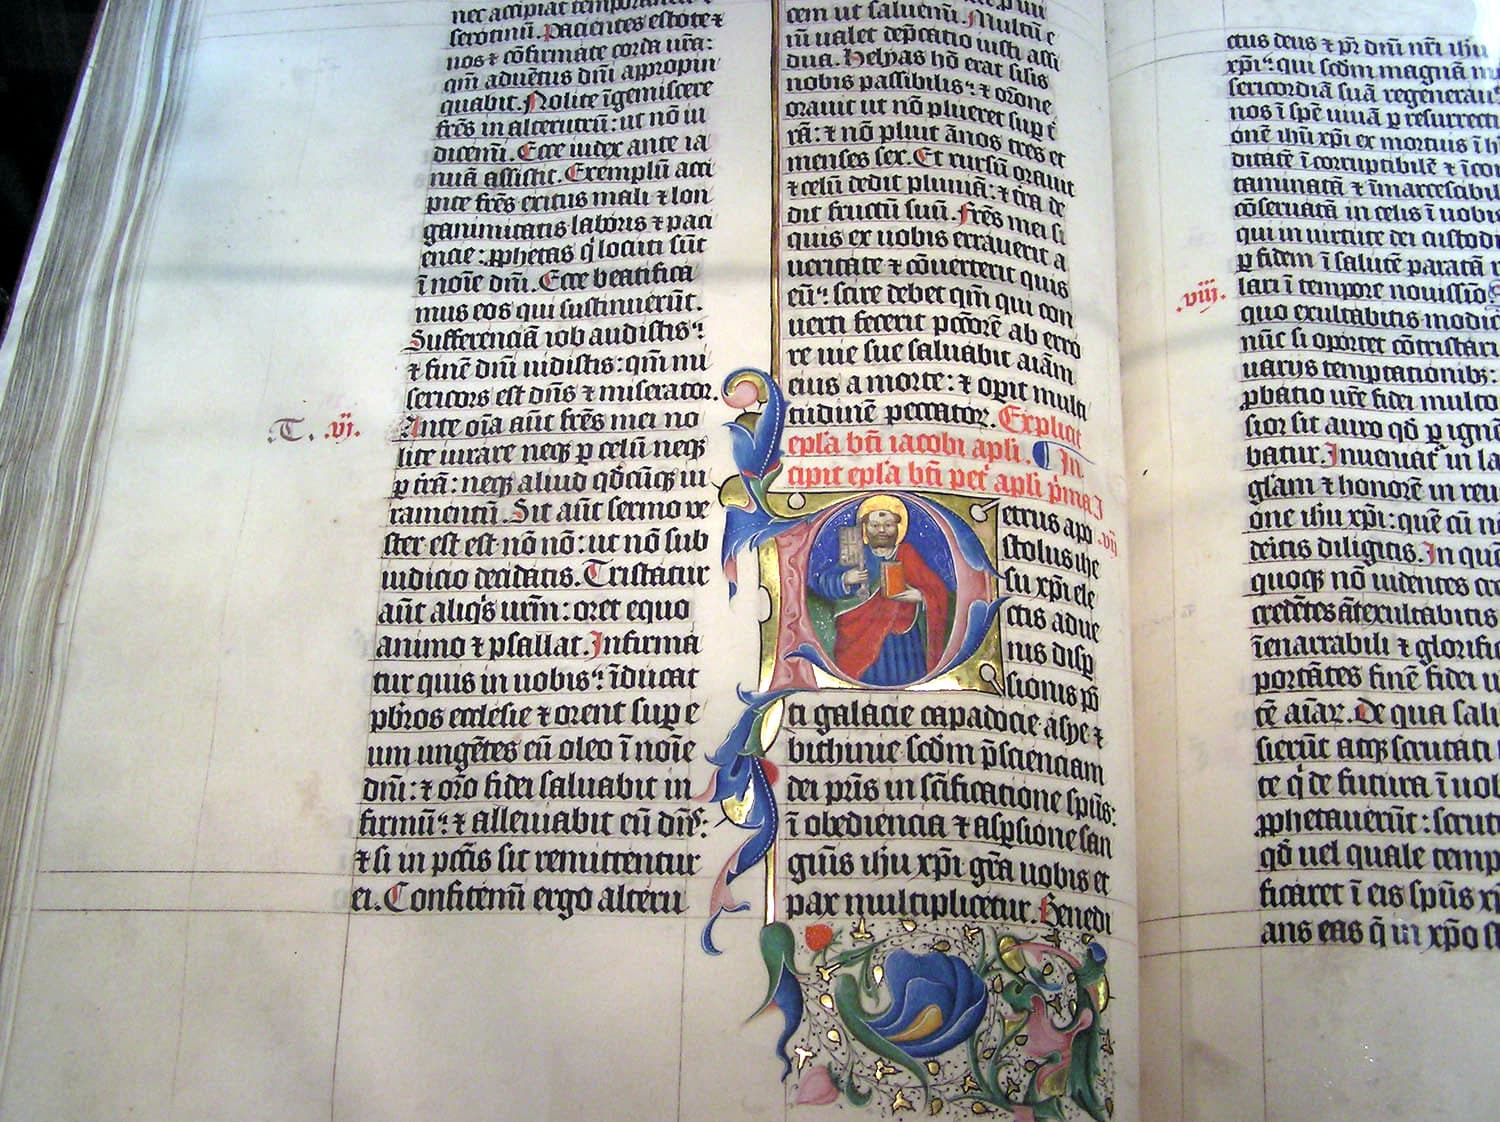 nec accipiat temporaneū ⁊
serotinū. Pacientes estote ⁊
uos ⁊ cōfirmate corda ur̄a:
qm̄ aduētus dn̄i appropin
quabit. Nolite īgemiscere
fr̄es in alterutrū: ut nō iu
dicem̄i. Ecce iudex ante ia
nuā assistit. Exemplū acci
pite fr̄es exitus mali ⁊ lon
ganimitatis laboris ⁊ paci
encie: ꝓphetas q̇ locuti sūt
ī noīe dn̄i. Ecce beatifica
mus eos qui sustinuerūt.
Sufferenciā iob audistis:
⁊ finē dn̄i uidistis: qm̄ mi
sericors est dn̄s ⁊ miserator.
.T. .vj.
Ante oīa aūt fr̄es mei no
lite iurare neqꝫ ꝑ celū neqꝫ
ꝑ t̄rā: neqꝫ aliud qd̄cūqꝫ iu
ramentū. Sit aūt sermo ve
ster est est nō nō: ut nō sub
iudicio decidatis. Tristatur
aūt aliqˢs ur̄m: oret equo
animo ⁊ psallat. Infirma
tur quis in uobis: īducat
pb̄ros ecclesie ⁊ orent suꝑ e
um ungētes eū oleo ī noīe
dn̄i: ⁊ or̄o fidei saluabit in
firmū: ⁊ alleuiabit eū dn̄s:
⁊ si in pcc̄is sit remittentur
ei. Confitem̄i ergo alteru
cem ut saluem̄i. Multū e
ī ualet dep̄catio iusti assi
dua. Helyas hō erat silis
nobis passibilis: ⁊ or̄one
orauit ut nō plueret suꝑ t̄
rā: ⁊ nō pluit ānos tres et
menses sex. Et rursū orauit
⁊ celū dedit pluuiā: ⁊ t̄ra de
dit fructū suū. Fr̄es mei si
quis ex uobis errauerit a
ueritate ⁊ cōuerterit quis
eū: scire debet qm̄ qui con
uerti fecerit pcc̄orē ab erro
re uie sue saluabit aīam
eius a morte: ⁊ oꝑit multi
tudinē peccatoꝝ. Explicit
epl̄a bt̄i iacobi apl̄i. In
cipit epl̄a bt̄i pet̄ apl̄i p̄ma
.vij.
Petrus apo
stolus ihe
su xp̄i ele
ctis adue
nis disꝑ
sionis pō
ti galacie capadocie asye ⁊
bithinie scd̄m p̄scienciam
dei pr̄is in sc̄ificatione sp̄us:
ī obediencia ⁊ aspsione san
guīs ih̄u xp̄i gr̄a uobis et
pax multiplicetur. Benedi
ctus deus ⁊ pr̄ dn̄i nr̄i ih̄u
xp̄i: qui scd̄m magnā m
sericordiā suā regenerauit
nos ī spē uiuā ꝑ resurrecti
onē ih̄u xp̄i ex mortuis ī h
ditatē ī corruptibilē ⁊ īcon
taminatā ⁊ īmarcescibil
cōseruatā in celis ī uobis
qui in uirtute dei custodi
ꝑ fidem ī salutē paratā r
.viij.
lari ī tempore nouissīo
quo exultabitis modic
nūc si oportet cōtristari
uarijs temptationibꝫ:
ꝓbatio ur̄e fidei multo
sior sit auro qd̄ ꝑ ignē
batur. Inueniat̄ in la
gl̄am ⁊ honorē in reu
one ih̄u xp̄i: quē cū n
deitis diligitis. In quē
quoqꝫ nō uidentes cre
credētes āt exultabitis
īenarrabili ⁊ glorific
portātes finē fidei u
tē aīaꝝ. De qua salu
sierūt atqꝫ scrutati
te q̇ de futura ī uob
ꝓphetauerūt: scrut
qd̄ uel quale temp
ficaret ī eis sp̄us xp̄
ans eas q̄ in xp̄o